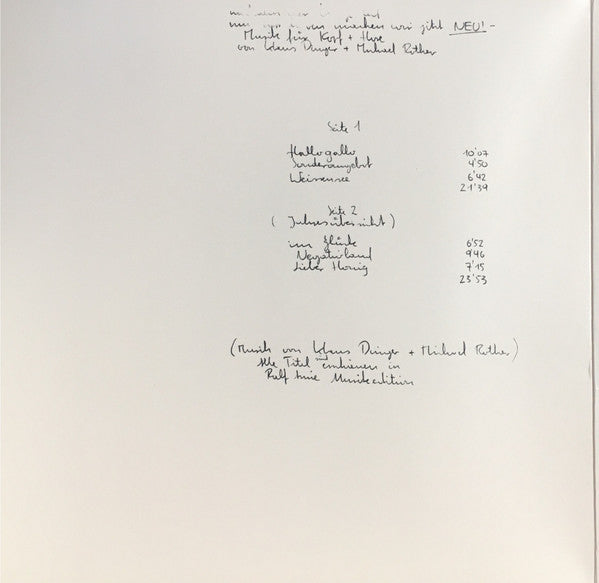 wir jetzt NEU! -
Musik für Kopf + Ihre
von Klaus Dinger + Michael Rother
Seite 1
Hallogallo 10'07
Sonderangebot 4'50
Weissensee 6'42
21'39
Seite 2
( Jahresübersicht )
im Glück 6'52
Negativland 9'46
Lieber Honig 7'15
23'53
(Musik von Klaus Dinger + Michael Rother)
Alle Titel erschienen in
Ralf Arnie Musikedition